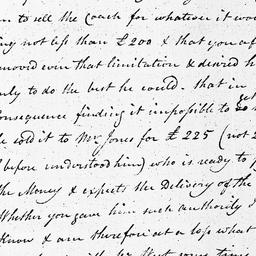 to sell the Coach for whatever it wou
ing not less than £200 & that you aft
moved even that limitation & desired h
only to do the best he could. that in
onsequence finding it impossible to get
he sold it to Mr Jones for £225 (not 2
I before understood him) who is ready to p
the Money & expects the Delivery of the
Whether you gave him such authority I
Know & am therefore at a loss what